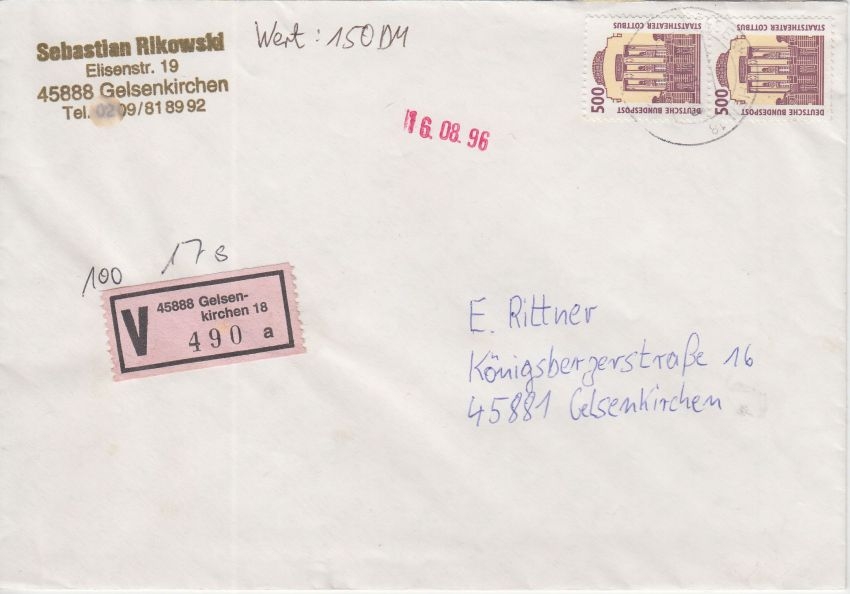 Sebastian Rikowski
Elisenstr. 19
45888 Gelsenkirchen
Tel. 0209/818992
Wert: 150DM
16.08.96
500
DEUTSCHE BUNDESPOST
STAATSTHEATER COTTBUS
500
DEUTSCHE BUNDESPOST
STAATSTHEATER COTTBUS
100 17 s
V 45888 Gelsen-
kirchen 18
490 a
E. Rittner
Königsbergerstraße 16
45881 Gelsenkirchen